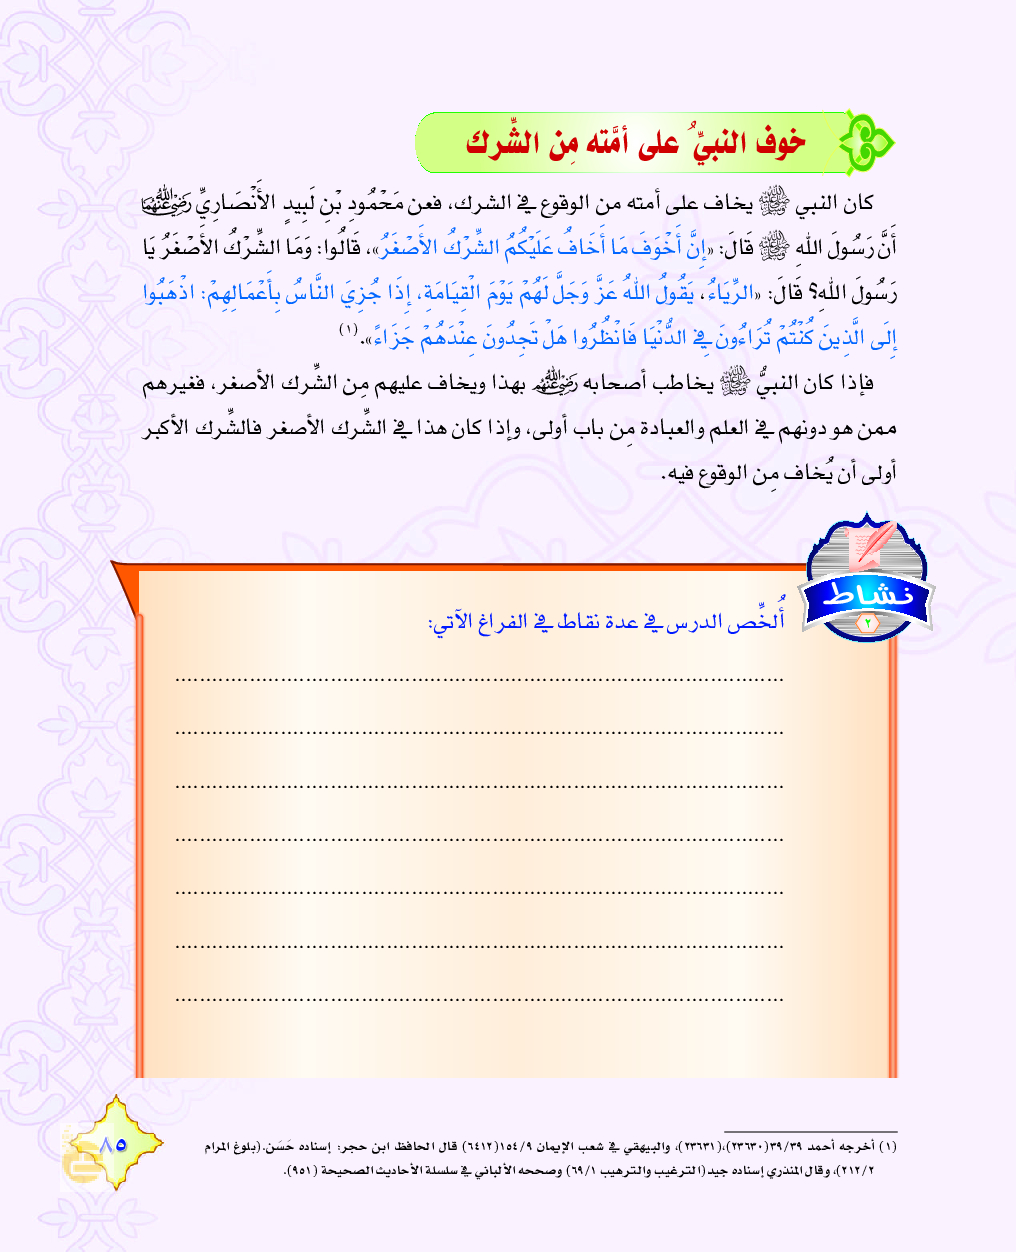 خوف النبيِّ ُ على أمَّته مِن الشِّرك
كان النبي ﷺ يخاف على أمته من الوقوع في الشرك، فعن مَحْمُودِ بْنِ لَبِيدٍ الأَنْصَارِيِّ رضي الله عنهما
أَنَّ رَسُولَ اللهِ ﷺ قَالَ: «إِنَّ أَخْوَفَ مَا أَخَافُ عَلَيْكُمُ الشِّرْكُ الأَصْغَرُ»، قَالُوا: وَمَا الشِّرْكُ الأَصْغَرُ يَا
رَسُولَ اللهِ؟ قَالَ: «الرِّيَاءُ، يَقُولُ اللهُ عَزَّ وَجَلَّ لَهُمْ يَوْمَ الْقِيَامَةِ، إِذَا جُزِيَ النَّاسُ بِأَعْمَالِهِمْ: اذْهَبُوا
إِلَى الَّذِينَ كُنْتُمْ تُرَاءُونَ فِي الدُّنْيَا فَانْظُرُوا هَلْ تَجِدُونَ عِنْدَهُمْ جَزَاءً».(١)
فإذا كان النبيُّ ﷺ يخاطب أصحابه رضي الله عنهم بهذا ويخاف عليهم مِن الشِّرك الأصغر، فغيرهم
ممن هو دونهم في العلم والعبادة مِن باب أولى، وإذا كان هذا في الشِّرك الأصغر فالشِّرك الأكبر
أولى أن يُخاف مِن الوقوع فيه.
نشاط
٢
أُلخِّص الدرس في عدة نقاط في الفراغ الآتي:
................................................................................
................................................................................
................................................................................
................................................................................
................................................................................
................................................................................
................................................................................
(١) أخرجه أحمد ٣٩/٣٩(٢٣٦٣٠)،(٢٣٦٣١)، والبيهقي في شعب الإيمان ١٥٤/٩(٦٤١٢) قال الحافظ ابن حجر: إسناده حَسَن.(بلوغ المرام
٢١٢/٢)، وقال المنذري إسناده جيد(الترغيب والترهيب ٦٩/١) وصححه الألباني في سلسلة الأحاديث الصحيحة (٩٥١).
٨٥